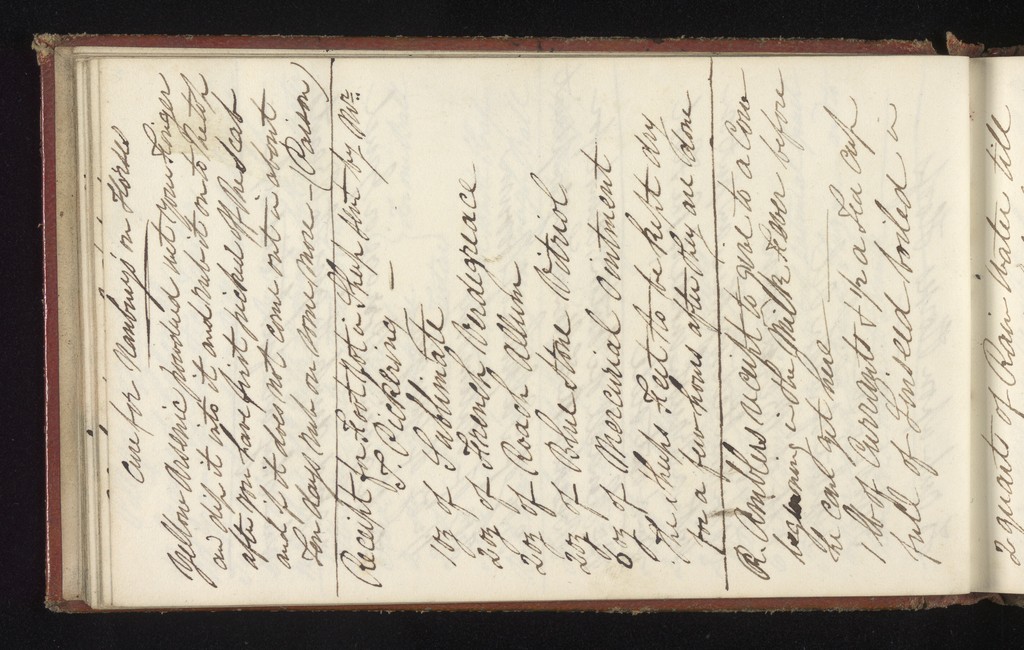 Cure for Ranbury's in Horses
Yellow Arsenic pounded wet your Finger
and dip it into it and rub it on to Sietch
after you have first picked off the Scab
and if it does not come out in about
Ten days rub on some more - (Poison)
Receipt for Footrot in Sheep sent by Mr.
J. Pickering
1oz of Sublimate
2oz of French Verdegreace
2oz of Roach Allum
2oz of Blue Stone Vitriol
6oz of Mercurial Ointment
The sheeps Feet to be kept dry
for a few hours after they are done
R. Amblers receipt to give to a Cow
beginning in the Milk Fever before
he can get here
1 lb of Currants & 1/2 a Tea cup
full of Linseed boiled in
2 quarts of Rain water till